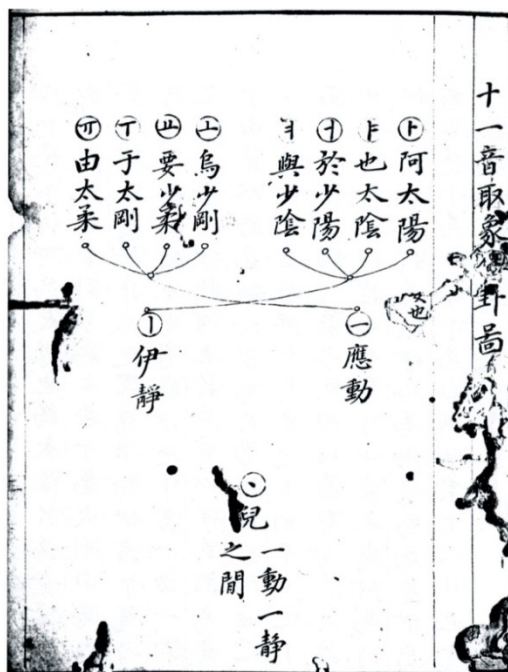 十一音取象卦圖
ㅏ阿太陽
ㅑ也太陰
ㅓ於少陽
ㅕ與少陰
ㅗ烏少剛
ㅛ要少柔
ㅜ于太剛
ㅠ由太柔
ㅡ應動
ㅣ伊靜
ㆍ兒
一動一靜
之間